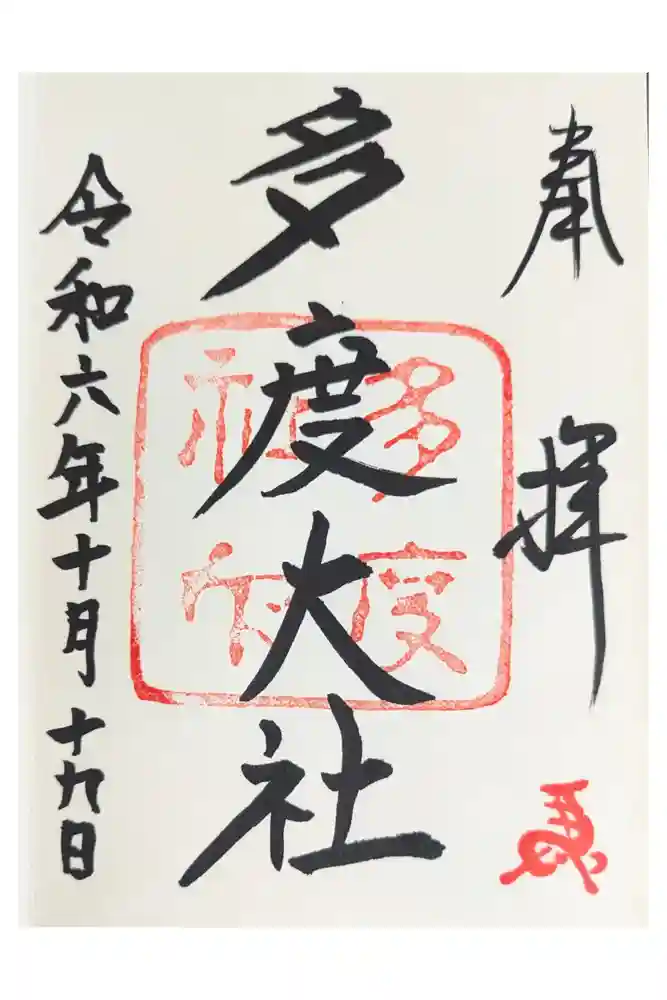 奉拝
多度大社
令和六年十月十九日
多度